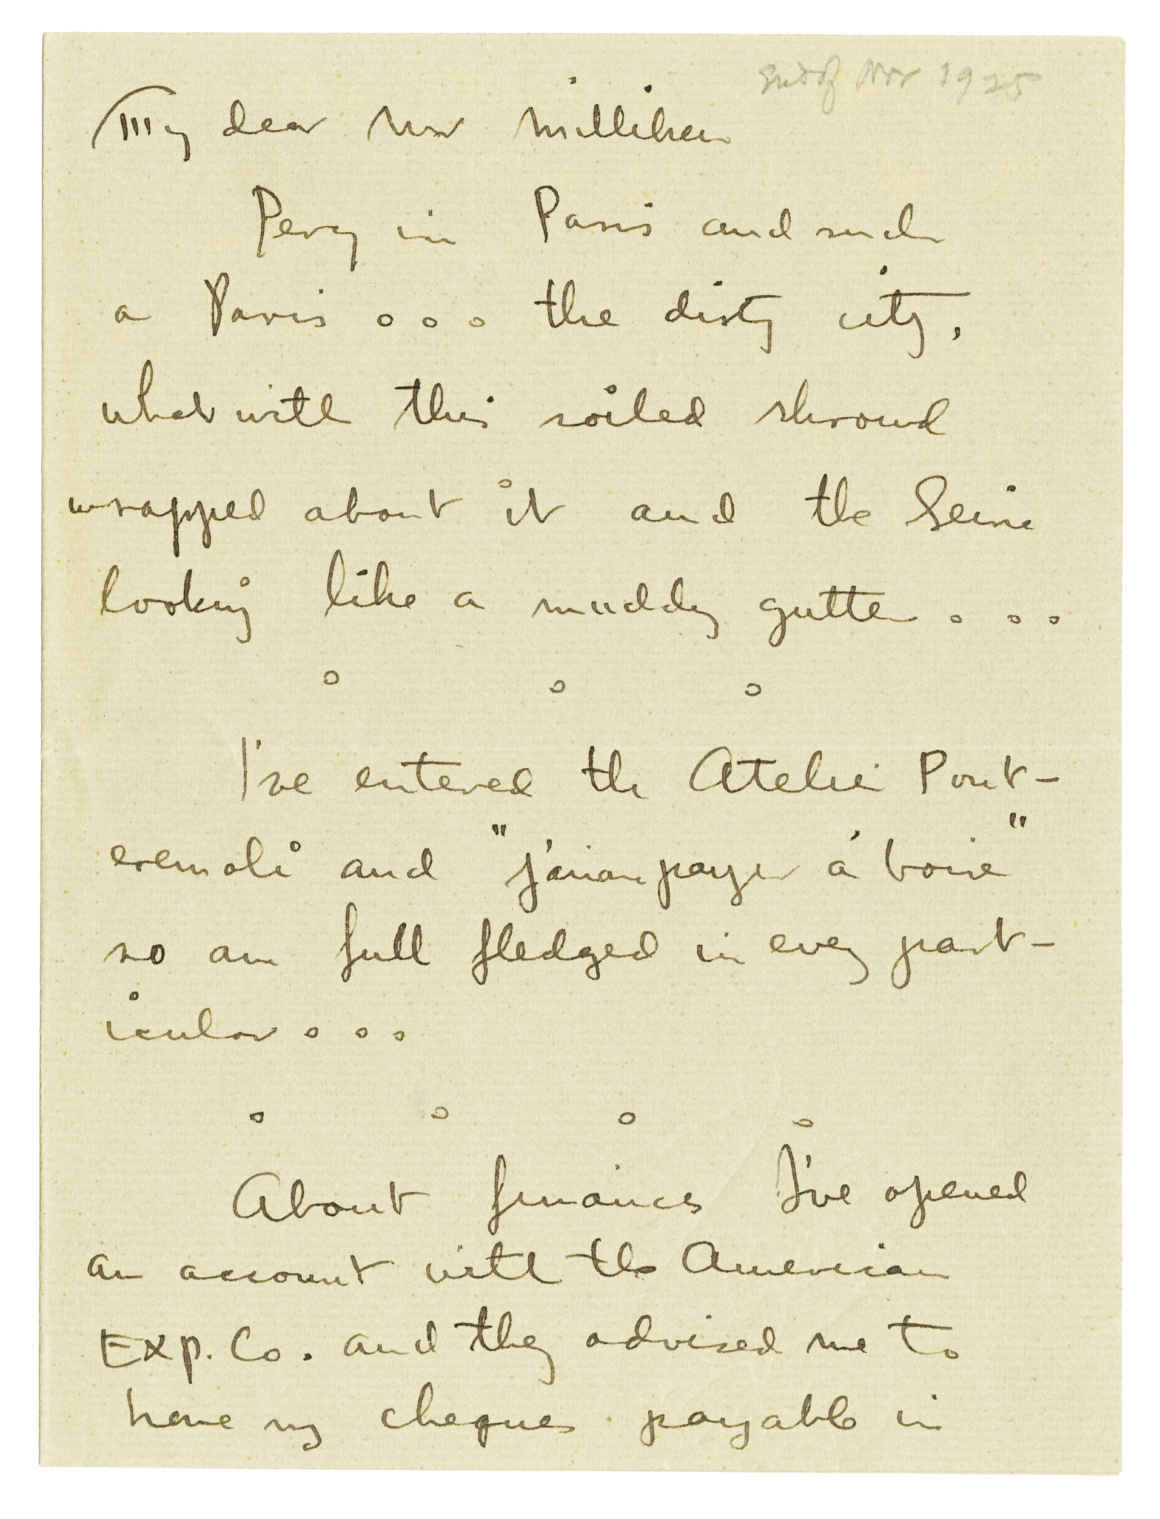 End of Nov 1925
My dear Mr Milliken
Percy in Paris and such
a Paris . . . the dirty city,
what with this soiled shroud
wrapped about it and the Seine
looking like a muddy gutter . . .
I've entered the Atelier Pont-
eremoli and "j'ai payer à boire"
so am full fledged in every part-
icular . . .
About finances I've opened
an account with the American
Exp. Co. and they advised me to
have my cheques payable in